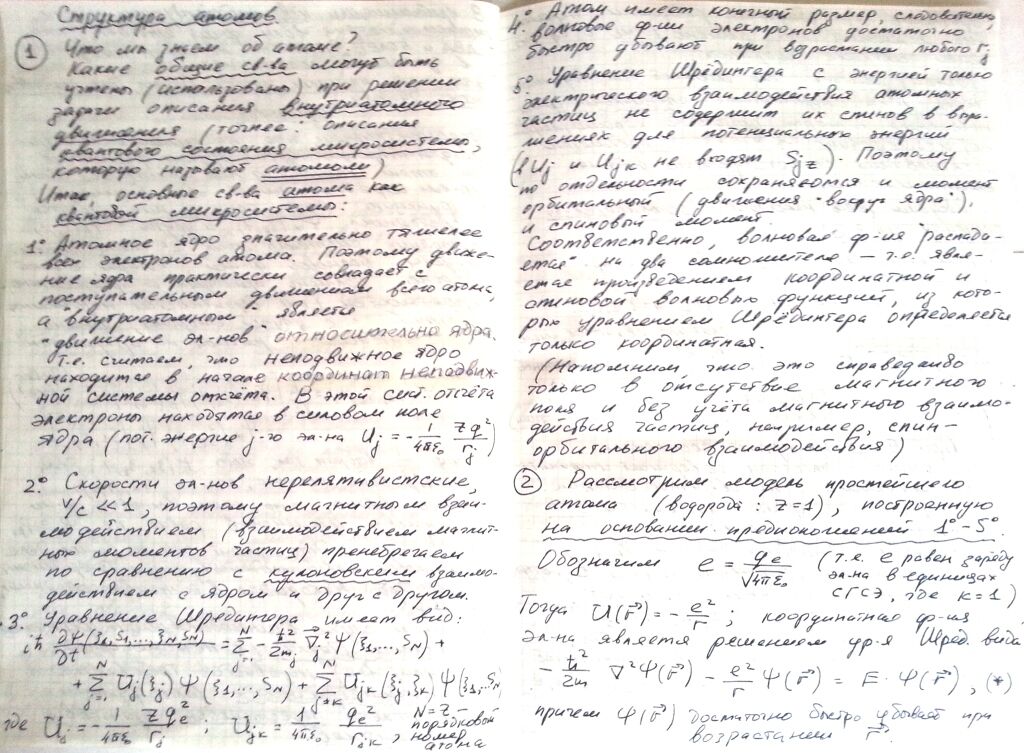 Структура атомов.
① Что мы знаем об атоме?
Какие общие св-ва могут быть
учтены (использованы) при решении
задачи описания внутриатомного
движения (точнее: описания
квантового состояния микросистемы,
которую называют атомом)
Итак, основные св-ва атома как
квантовой микросистемы:
1° Атомное ядро значительно тяжелее
всех электронов атома. Поэтому движе-
ние ядра практически совпадает с
поступательным движением всего атома,
а "внутриатомным" является
"движение эл-нов" относительно ядра.
Т.е. считаем, что неподвижное ядро
находится в начале координат неподвиж-
ной системы отсчёта. В этой сист. отсчёта
электроны находятся в силовом поле
ядра (пот. энергия j-го эл-на U_j = -1/4πε₀ zq²/r_j)
2° Скорости эл-нов нерелятивистские,
v/c ≪ 1, поэтому магнитным взаи-
модействием (взаимодействием магнит-
ных моментов частиц) пренебрегаем
по сравнению с кулоновским взаимо-
действием с ядром и друг с другом.
3° Уравнение Шрёдингера имеет вид:
iħ ∂Ψ(ξ₁,S₁,...,ξ_N,S_N)/∂t = Σ_{j=1}^{N} -ħ²/2m_j ∇⃗_j² Ψ(ξ₁,...,S_N) +
+ Σ_{j=1}^{N} U_j(ξ_j) Ψ(ξ₁,...,S_N) + Σ_{j≠k}^{N} U_jk(ξ_j,ξ_k) Ψ(ξ₁,...,S_N)
где U_j = -1/4πε₀ zq_e²/r_j ; U_jk = 1/4πε₀ q_e²/r_jk , N=z –
порядковый
номер
атома
4.° Атом имеет конечный размер, следовательно,
волновые ф-ии электронов достаточно
быстро убывают при возрастании любого r_j
5° Уравнение Шрёдингера с энергией только
электрического взаимодействия атомных
частиц не содержит их спинов в выра-
жениях для потенциальные энергий
(в U_j и U_jk не входят S_jz). Поэтому
по отдельности сохраняются и момент
орбитальный (движения "вокруг ядра"),
и спиновый момент.
Соответственно, волновая ф-ия "распада-
ется" на два сомножителя – т.е. явля-
ется произведением координатной и
спиновой волновых функций, из кото-
рых уравнением Шрёдингера определяется
только координатная.
(Напомним, что это справедливо
только в отсутствие магнитного
поля и без учёта магнитного взаимо-
действия частиц, например, спин-
орбитального взаимодействия)
② Рассмотрим модель простейшего
атома (водорода: z=1), построенную
на основании предположений 1°-5°.
Обозначим e = q_e/√4πε₀ (т.е. e равен заряду
эл-на в единицах
СГСЭ, где k=1)
Тогда U(r⃗) = -e²/r ; координатная ф-ия
эл-на является решением ур-я Шрёд. вида
-ħ²/2m ∇²Ψ(r⃗) - e²/r Ψ(r⃗) = E·Ψ(r⃗), (*)
причем Ψ(r⃗) достаточно быстро убывает при
возрастании r⃗.